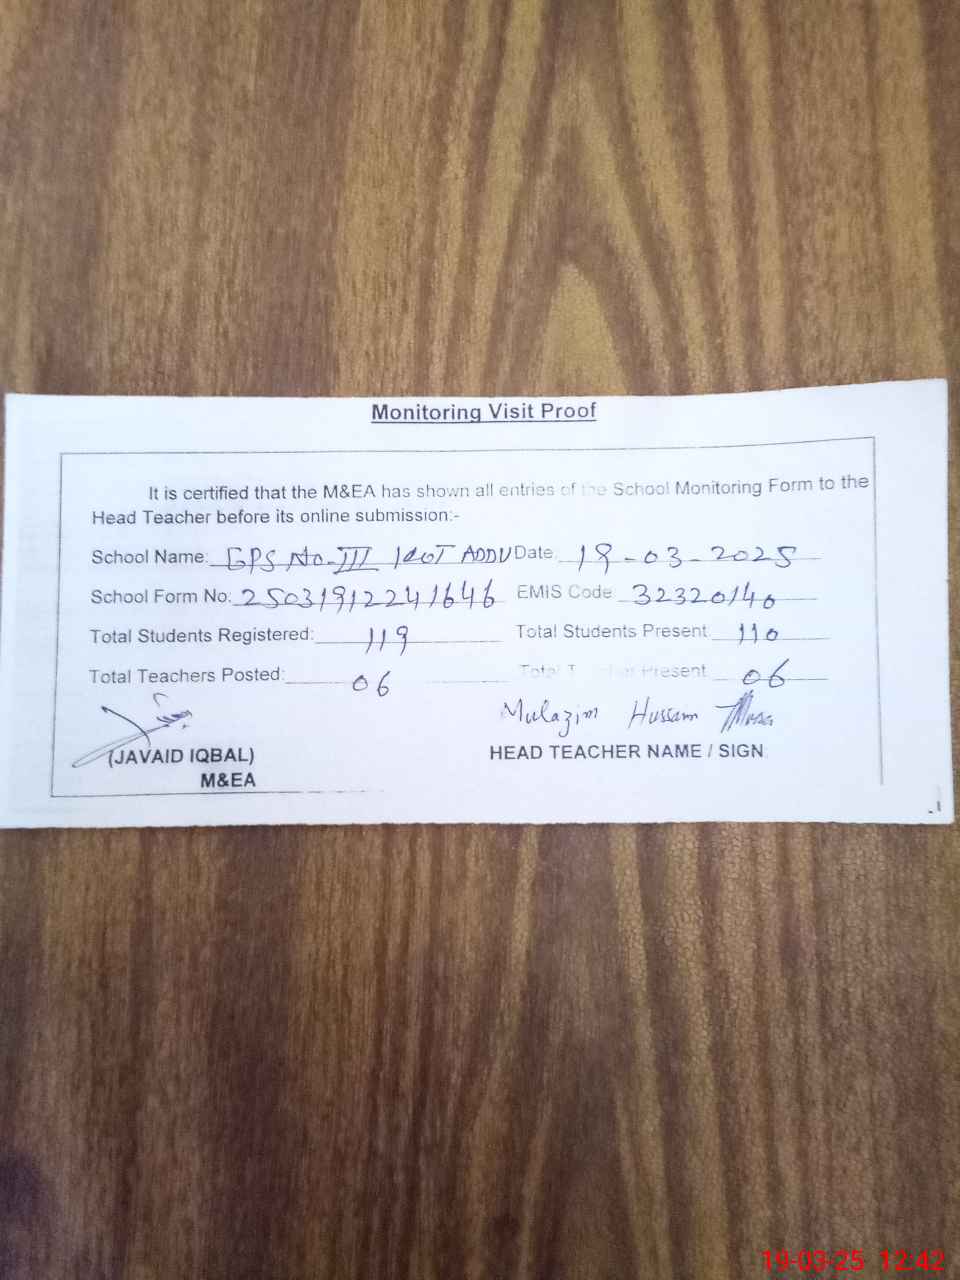 Monitoring Visit Proof
It is certified that the M&EA has shown all entries of the School Monitoring Form to the
Head Teacher before its online submission:-
School Name: GPS No-III KOT ADDU Date: 19-03-2025
School Form No: 25031912241646 EMIS Code 32320140
Total Students Registered: 119 Total Students Present 110
Total Teachers Posted: 06 Total Teacher Present 06
Mulazim Hussain
(JAVAID IQBAL) HEAD TEACHER NAME / SIGN
M&EA
19-03-25 12:42